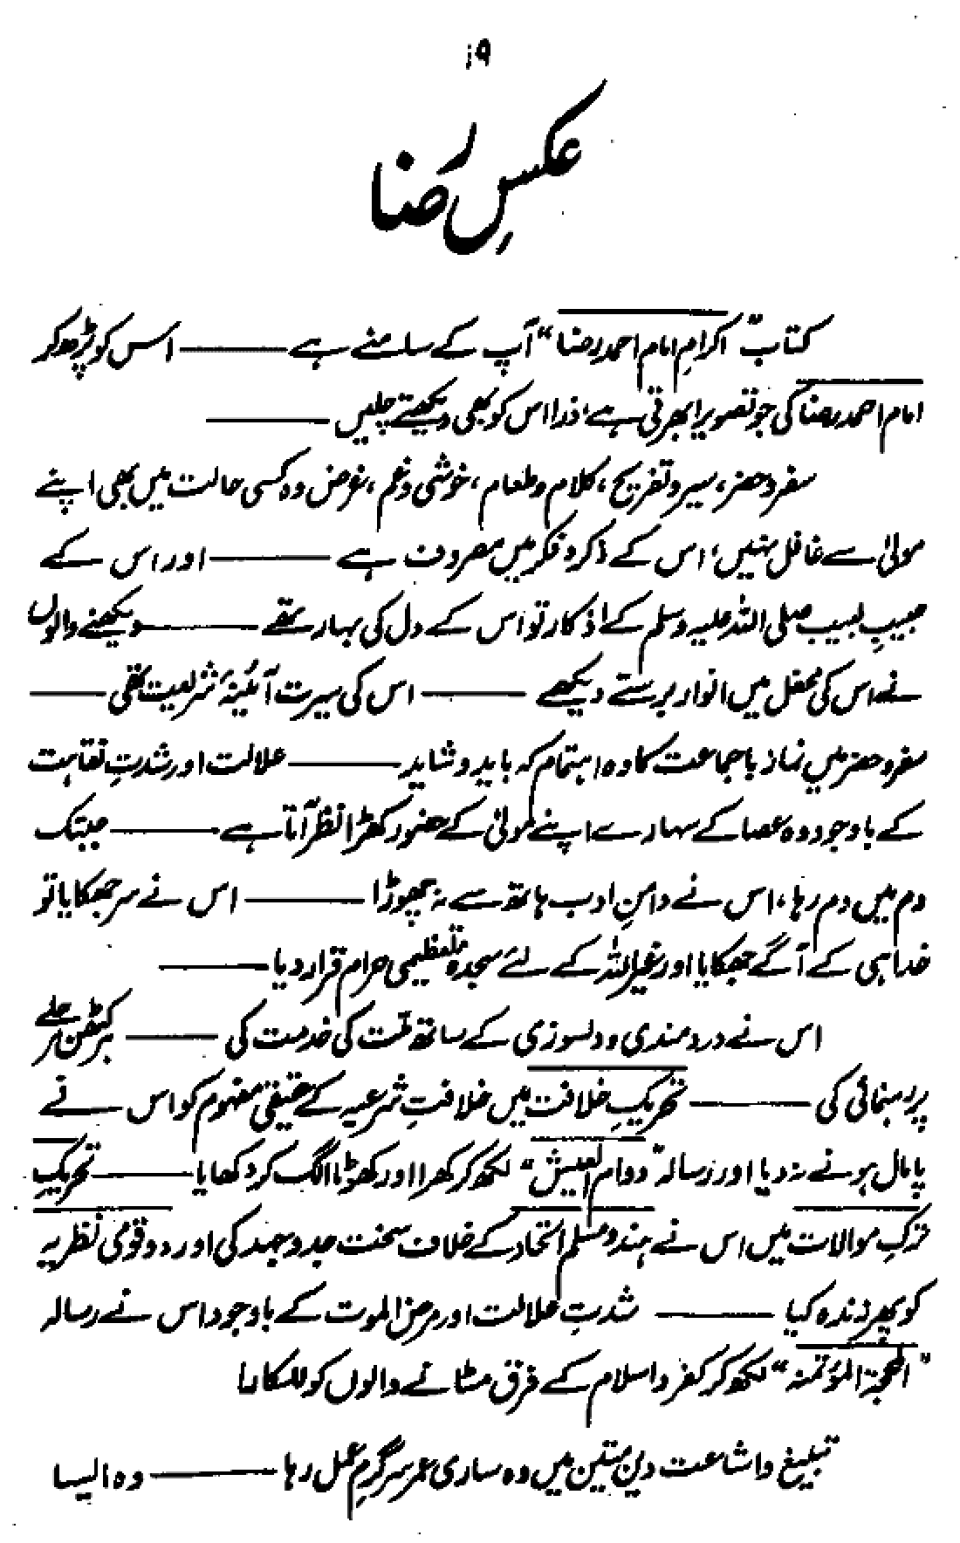 ۱۹
عکسِ رضا
کتاب ”اکرامِ امام احمد رضا“ آپ کے سامنے ہے ——— اس کو پڑھ کر
امام احمد رضا کی جو تصویر ابھرتی ہے، ذرا اس کو بھی دیکھتے چلیں ———
سفر و حضر، سیر و تفریح، کلام و طعام، خوشی و غم، غرض وہ کسی حالت میں بھی اپنے
مولیٰ سے غافل نہیں، اس کے ذکر و فکر میں مصروف ہے ——— اور اس کے
حبیبِ لبیب صلی اللہ علیہ وسلم کے اذکار تو اس کے دل کی بہار تھے ——— دیکھنے والوں
نے اس کی محفل میں انوار برستے دیکھے ——— اس کی سیرت آئینۂ شریعت تھی ———
سفر و حضر میں نماز باجماعت کا وہ اہتمام کہ باید و شاید ——— علالت اور شدتِ نقاہت
کے باوجود وہ عصا کے سہارے اپنے مولیٰ کے حضور کھڑا نظر آتا ہے ——— جب تک
دم میں دم رہا، اس نے دامنِ ادب ہاتھ سے نہ چھوڑا ——— اس نے سر جھکایا تو
خدا ہی کے آگے جھکایا اور غیر اللہ کے لئے سجدہ تعظیمی حرام قرار دیا ———
اس نے دردمندی و دلسوزی کے ساتھ ملّت کی خدمت کی ——— ہر کٹھن مرحلے
پر رہنمائی کی ——— تحریکِ خلافت میں خلافتِ شرعیہ کے حقیقی مفہوم کو اس نے
پامال ہونے نہ دیا اور رسالہ ”دوام العیش“ لکھ کر کھرا اور کھوٹا الگ کر دکھایا ——— تحریکِ
ترکِ موالات میں اس نے ہندو مسلم اتحاد کے خلاف سخت جدوجہد کی اور دو قومی نظریہ
کو پھر زندہ کیا ——— شدتِ علالت اور مرض الموت کے باوجود اس نے رسالہ
”المحجۃ المؤتمنہ“ لکھ کر کفر و اسلام کے فرق مٹانے والوں کو للکارا
تبلیغ و اشاعت دینِ متین میں وہ ساری عمر سرگرمِ عمل رہا ——— وہ ایسا